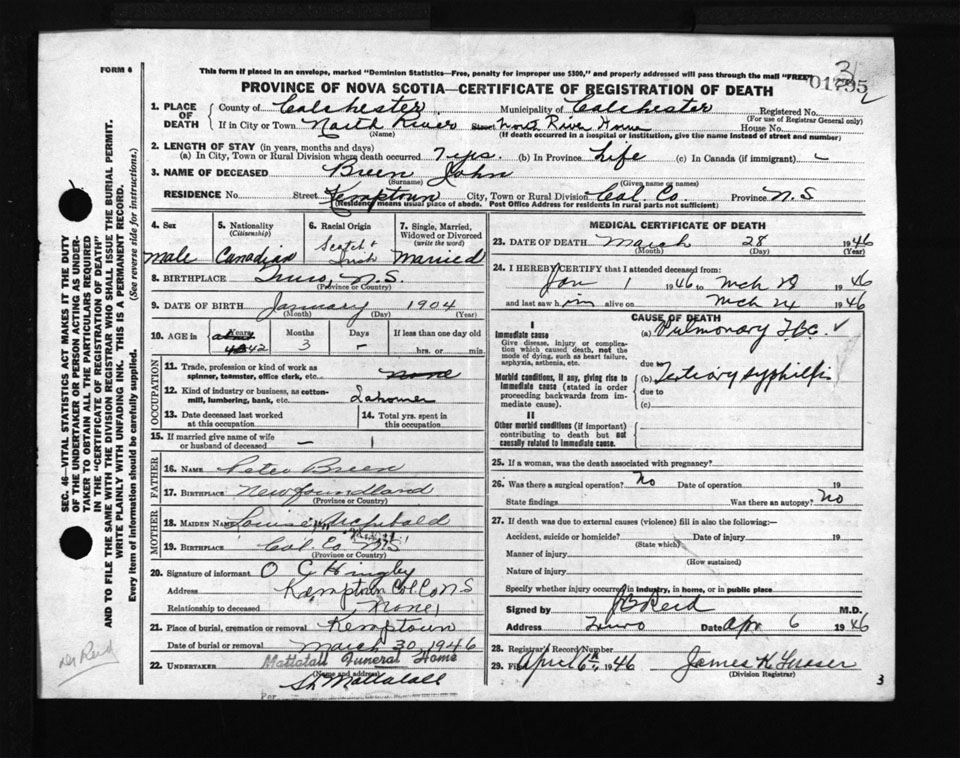 FORM 4
This form if placed in an envelope, marked "Dominion Statistics—Free, penalty for improper use $300," and properly addressed will pass through the mail "FREE"
PROVINCE OF NOVA SCOTIA—CERTIFICATE OF REGISTRATION OF DEATH
1. PLACE OF DEATH
County of Colchester Municipality of Colchester Registered No.
(For use of Registrar General only)
If in City or Town North River Street North River Home House No.
(Name) (If death occurred in a hospital or institution, give the name instead of street and number)
2. LENGTH OF STAY (in years, months and days)
(a) In City, Town or Rural Division where death occurred 7 yrs. (b) In Province Life (c) In Canada (if immigrant)
3. NAME OF DECEASED Breen John
(Surname) (Given name or names)
RESIDENCE No. Street Kemptown City, Town or Rural Division Col. Co. Province N.S
(Residency means usual place of abode. Post Office Address for residents in rural parts not sufficient)
4. Sex
male
5. Nationality
(Citizenship)
Canadian
6. Racial Origin
Scotch + Irish
7. Single, Married, Widowed or Divorced
(write the word)
Married
8. BIRTHPLACE Truro, N.S.
(Province or Country)
9. DATE OF BIRTH January 1904
(Month) (Day) (Year)
10. AGE in Years Months Days If less than one day old
42 3 - hrs. or min.
OCCUPATION
11. Trade, profession or kind of work as spinner, teamster, office clerk, etc. none
12. Kind of industry or business, as cotton-mill, lumbering, bank, etc. Labourer
13. Date deceased last worked at this occupation
14. Total yrs. spent in this occupation
15. If married give name of wife or husband of deceased –
FATHER
16. NAME Peter Breen
17. BIRTHPLACE Newfoundland
(Province or Country)
MOTHER
18. MAIDEN NAME Louise Archibald
19. BIRTHPLACE Col. Co. N.S.
(Province or Country)
20. Signature of informant O C Hingley
Address Kemptown Col. Co N S
Relationship to deceased None
21. Place of burial, cremation or removal Kemptown
Date of burial or removal March 30, 1946
22. UNDERTAKER Mattatall Funeral Home
(Name and address)
Mattatall
Per
MEDICAL CERTIFICATE OF DEATH
23. DATE OF DEATH March 28 1946
(Month) (Day) (Year)
24. I HEREBY CERTIFY that I attended deceased from:
Jan 1 1946 to Mch 28 1946
and last saw him alive on Mch 24 1946
CAUSE OF DEATH
I
Immediate cause
Give disease, injury or complication which caused death, not the mode of dying, such as heart failure, asphyxia, asthenia, etc.
(a) Pulmonary TBC. ✓
due to
Morbid conditions, if any, giving rise to immediate cause (stated in order proceeding backwards from immediate cause).
(b) Tertiary syphilis
due to
(c)
II
Other morbid conditions (if important) contributing to death but not causally related to immediate cause.
25. If a woman, was the death associated with pregnancy?
26. Was there a surgical operation? No Date of operation 19
State findings Was there an autopsy? No
27. If death was due to external causes (violence) fill in also the following:—
Accident, suicide or homicide? Date of injury 19
(State which)
Manner of injury
(How sustained)
Nature of injury
Specify whether injury occurred in industry, in home, or in public place
Signed by J B Reid M.D.
Address Truro Date Apr 6 1946
28. Registrar's Record Number
29. Filed April 6th 1946 James K
(Division Registrar)
3
SEC. 46—VITAL STATISTICS ACT MAKES IT THE DUTY
OF THE UNDERTAKER OR PERSON ACTING AS UNDER-
TAKER TO OBTAIN ALL THE PARTICULARS REQUIRED
IN THE "CERTIFICATE OF REGISTRATION OF DEATH"
AND TO FILE THE SAME WITH THE DIVISION REGISTRAR WHO SHALL ISSUE THE BURIAL PERMIT.
WRITE PLAINLY WITH UNFADING INK. THIS IS A PERMANENT RECORD.
Every item of information should be carefully supplied. (See reverse side for instructions.)
Dr Reid